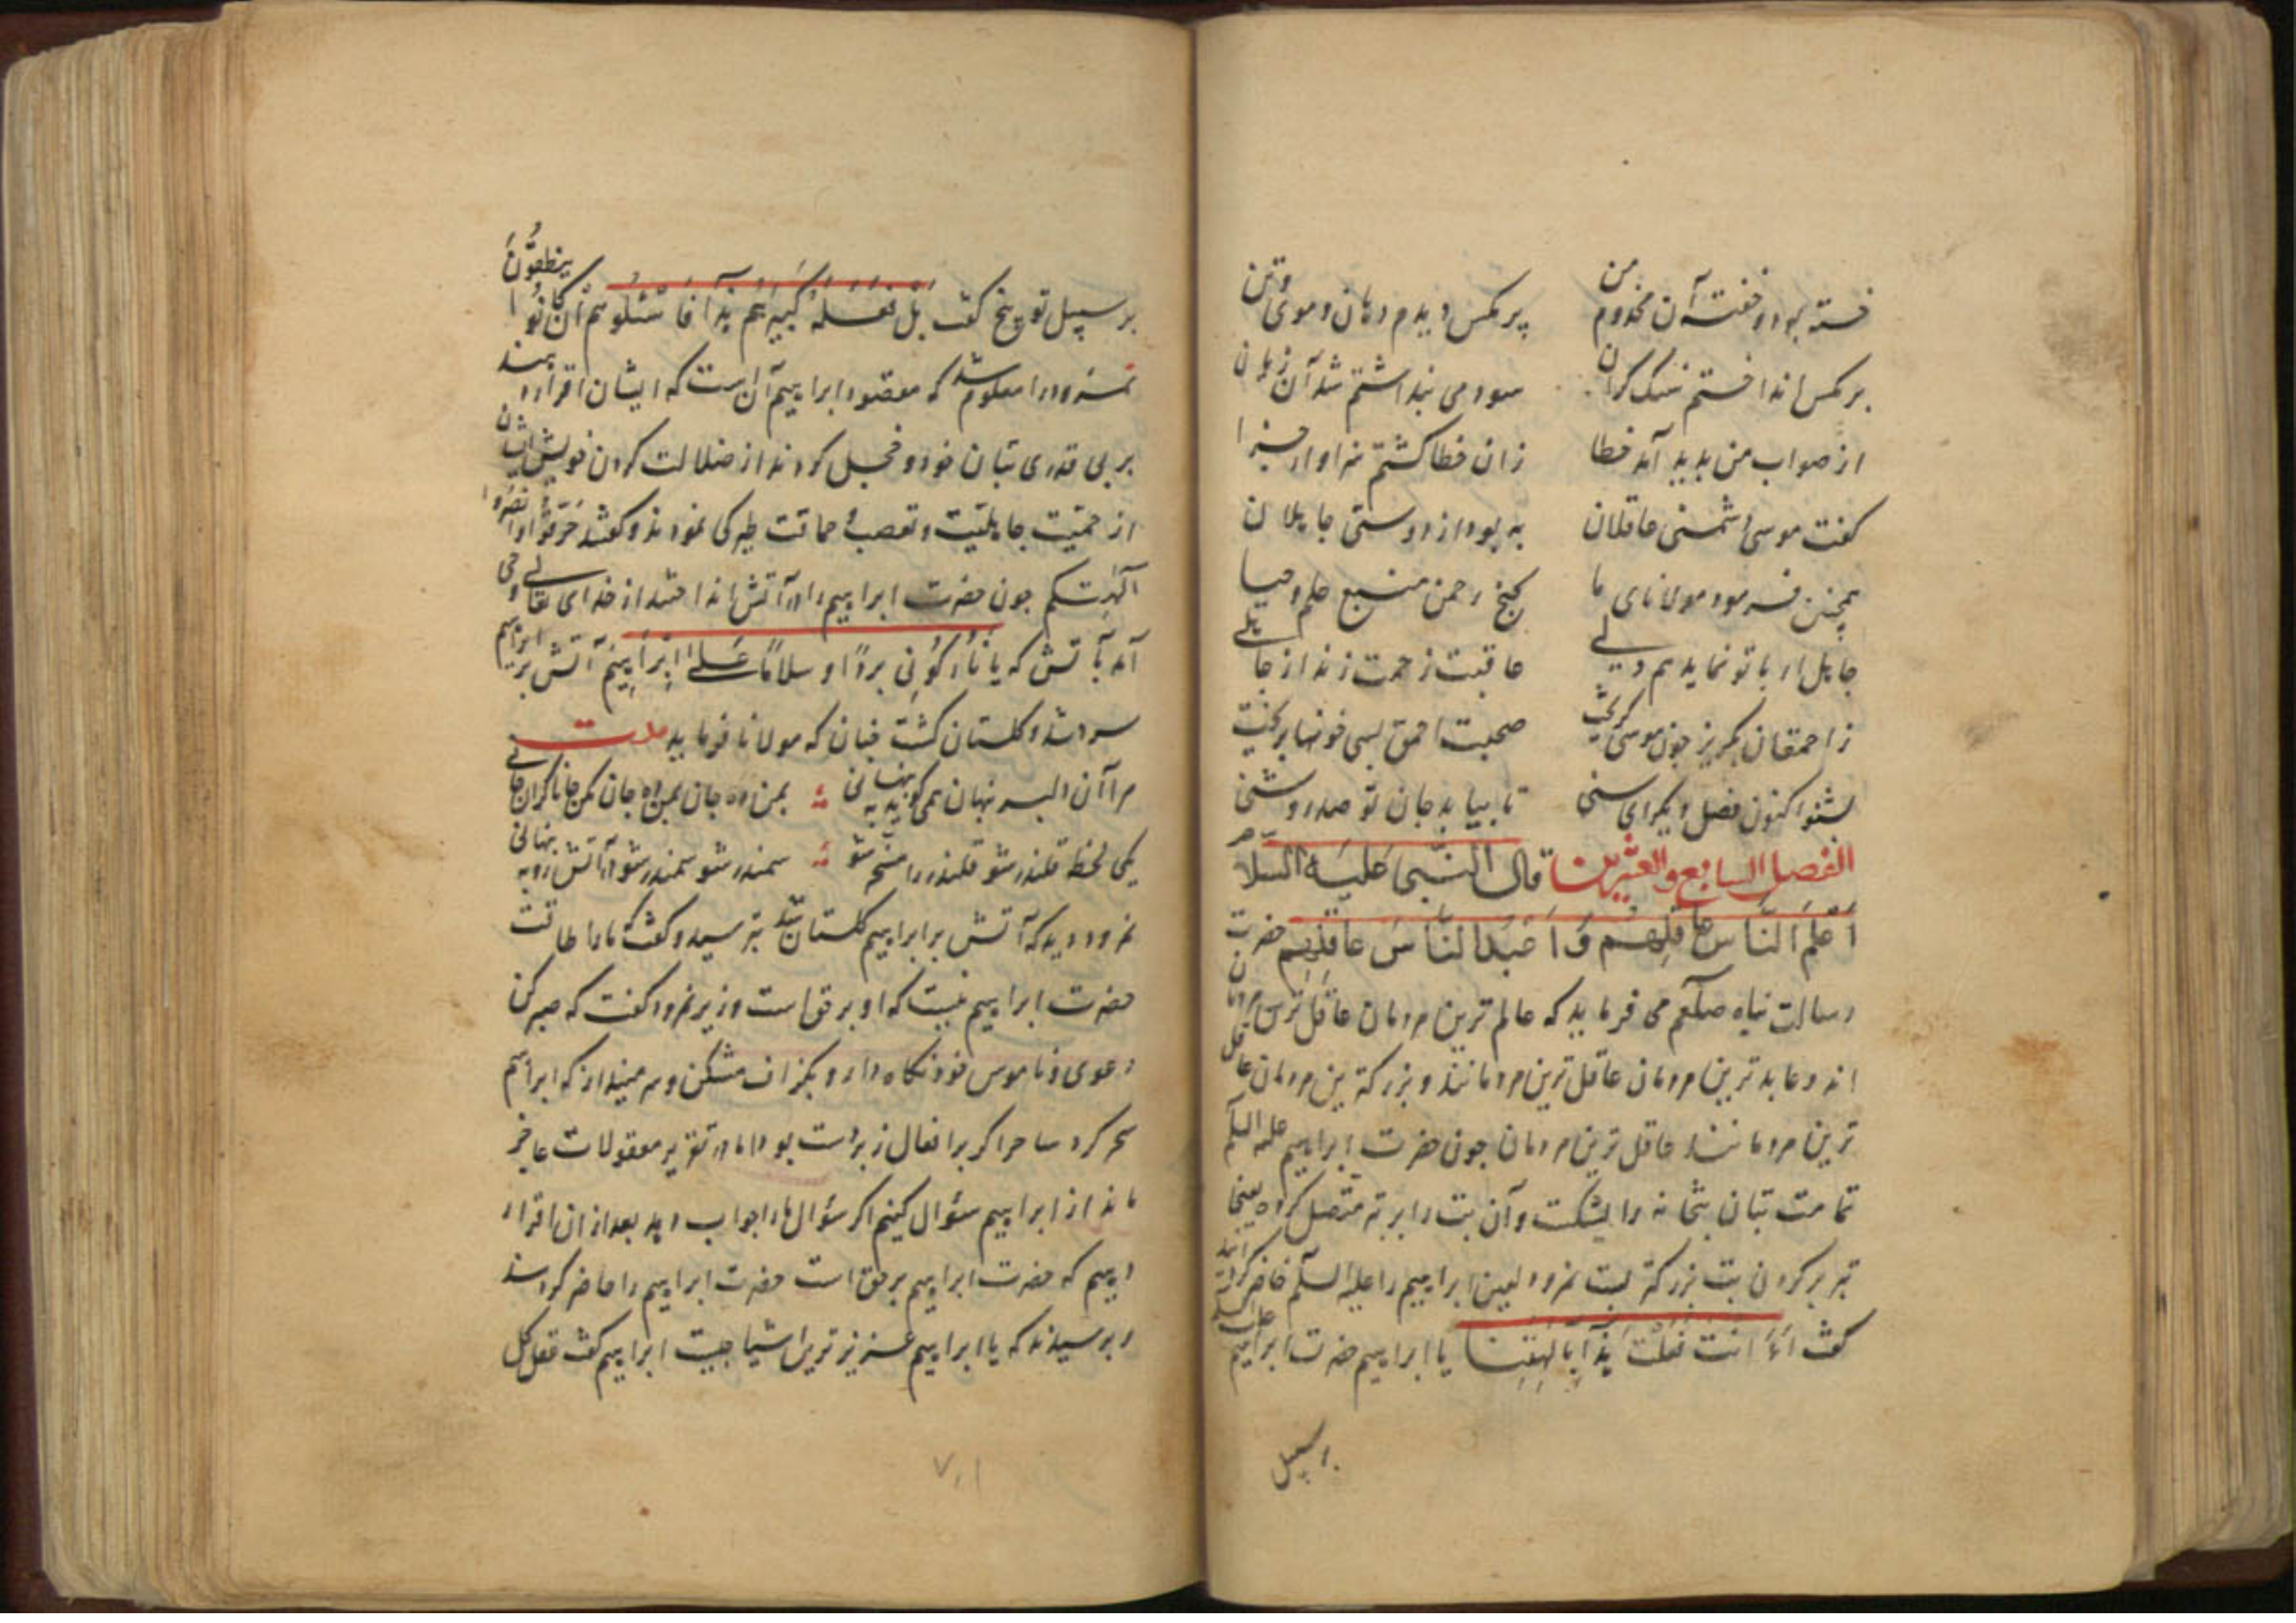 خسته بود و خفته آن مخدوم من
پر مکس دیدم دهان و موی و تن
بر مکس انداختم سنک کران
سود می پنداشتم شد آن زیان
از صواب من بدید آمد خطا
زان خطا کشتم سزاوار جزا
کفت موسی دشمنی عاقلان
به بود از دوستی جاهلان
همچنین فرمود مولانای ما
کنج رحمن منبع حلم و حیا
جاهل ار با تو نماید هم دلی
عاقبت زحمت زند از جاهلی
ز احمقان بکریز جون موسی کریخت
صحبت احمق بسی خونها بریخت
بشنو اکنون فصل دیکر ای سنی
تا بیابد جان تو صد روشنی
الفصل السابع والعشرین قال النبی علیه السلام
اَعْلَمُ النّاسِ عاقِلِهِم وَ اَعْبَدُ النّاسِ عاقِلِهِم حضرت
رسالت پناه صلعم می فرماید که عالم ترین مردمان عاقل ترین مردمان
اند و عابد ترین مردمان عاقل ترین مردمانند و بزرکترین مردمان عاقل
ترین مردمانند عاقل ترین مردمان جون حضرت ابراهیم علیه السلم
تمامت بتان بتخانه را بشکست و آن بت را بر بت متصل کرده یعنی
تبر بر کردن بت بزرکتر بست نمرود لعین ابراهیم را علیه السلم حاضر کردانید
کفت ءَاَنتَ فَعَلْتَ هذا بِآلِهَتِنا یا ابراهیم حضرت ابراهیم علیه السلم
بر سبیل
بر سبیل توبیخ کفت بَلْ فَعَلَهُ کَبیرُهُم هذا فَاسْئَلُوهُم اِن کانُوا یَنطِقُونَ
نمرود را معلوم شد که مقصود ابراهیم آن است که ایشان اقرار دهند
بر بی قدری بتان خود و خجل کردند از ضلالت کردن خویش ایشان
از حمیّت جاهلیّت و تعصب و حماقت طیرکی نمودند و کفتند حَرّقُوهُ وانصُرُوا
آلِهَتکم جون حضرت ابراهیم را در آتش انداختند از خدای تعالی وحی
آمد بآتش که یا نارُ کُونی بردًا و سلامًا عَلی اِبراهیمَ آتش بر ابراهیم
سرد شد و کلستان کشت جنان که مولانا فرماید بیت
مرا آن دلبر پنهان همی کوید به پنهانی ؞ بمن ده جان بمن ده جان مکن جانا کران جانی
یکی لحظه قلندر شو قلندر را مسخر شو ؞ سمندر شو سمندر شو در آتش رو به پنهانی
نمرود دید که آتش بر ابراهیم کلستان شد بترسید و کفت که ما را طاقت
حضرت ابراهیم نیست که او بر حق است وزیر نمرود کفت که صبر کن
دعوی و ناموس خود نکاه دار و بکزاف مشکن و سر مینداز که ابراهیم
سحر کرد ساحر اکر بر افعال زبردست بود اما در تقریر معقولات عاجز
ماند از ابراهیم سؤال کنیم اکر سؤال ما را جواب دهد بعد از ان اقرار
دهیم که حضرت ابراهیم بر حق است حضرت ابراهیم را حاضر کردند
و برسیدند که یا ابراهیم عزیز ترین اشیا جیست ابراهیم کفت عقل کل